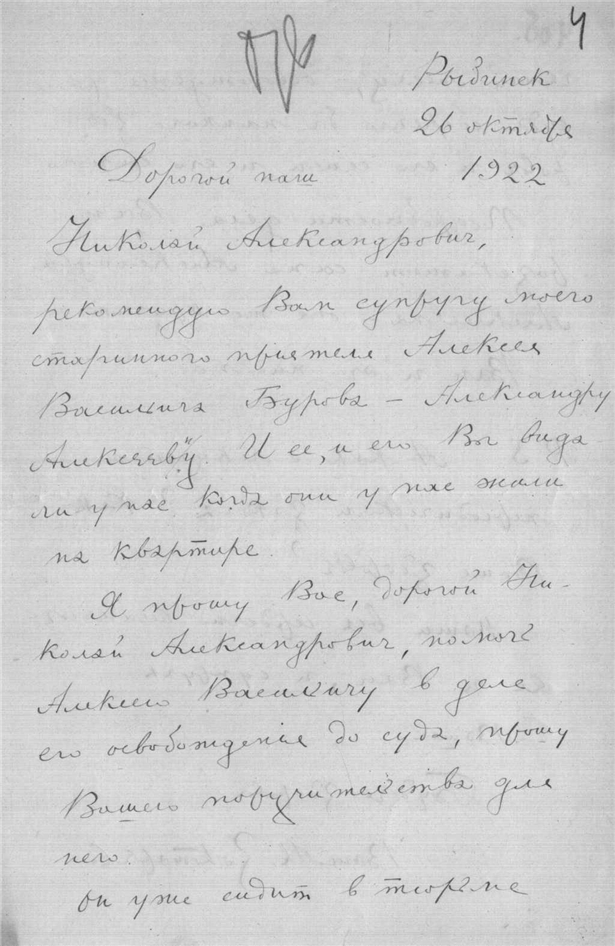 4
Рыбинск
26 октября
1922
Дорогой наш
Николай Александрович,
рекомендую Вам супругу моего
старинного приятеля Алексея
Васильича Бурова – Александру
Алексеевну. И ее, и его Вы вида-
ли у нас когда они у нас жили
на квартире.
Я прошу Вас, дорогой Ни-
колай Александрович, помочь
Алексею Васильичу в деле
его освобожденья до суда, прошу
Вашего поручительства для
него.
Он уже сидит в тюрьме